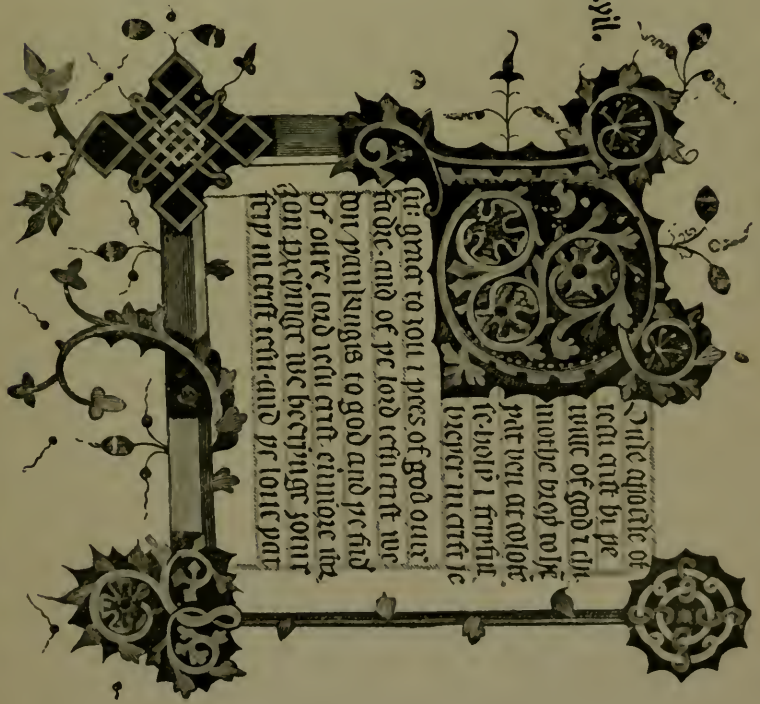 yil.
Oule apostle of
iesu crist bi þe
wille of god ⁊ tim
mothe broþ
þat ben at colose
se. holi ⁊ feiþful
breþen in crist ie
su: grace to ȝou ⁊ pees of god oure
fadre. and of þe lord iesu crist we
don þankingis to god and þe fad
of oure lord iesu crist euermore
ȝou preyinge we heeringe ȝoure
feiþ in crist iesu and þe loue þat